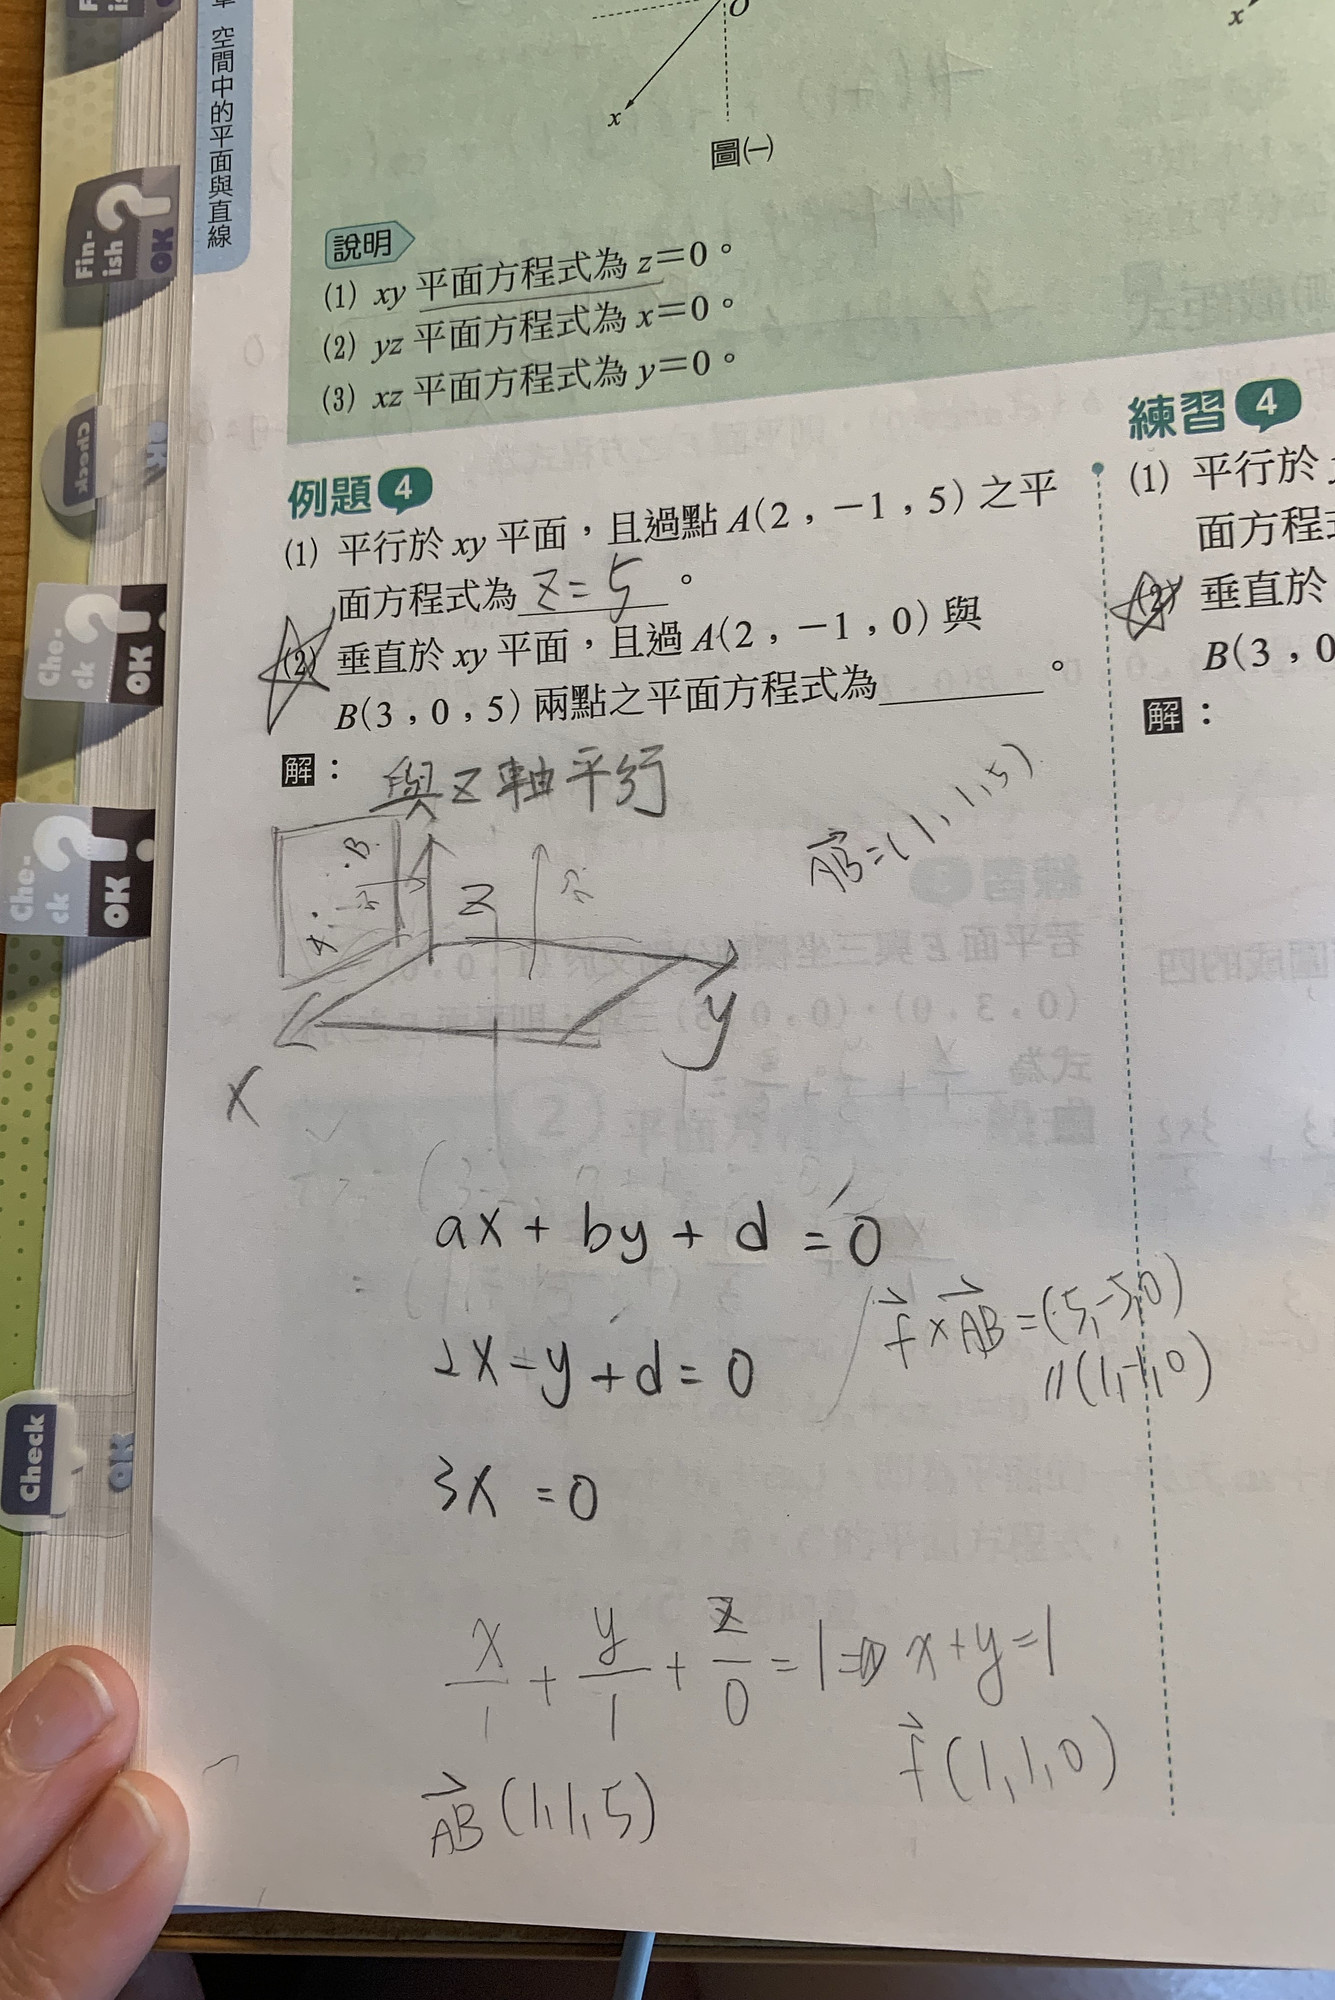 空間中的平面與直線
O
x
x
圖(一)
說明
(1) xy 平面方程式為 z=0。
(2) yz 平面方程式為 x=0。
(3) xz 平面方程式為 y=0。
例題 4
(1) 平行於 xy 平面,且過點 A(2,-1,5) 之平
面方程式為 z=5 。
(2) 垂直於 xy 平面,且過 A(2,-1,0) 與
B(3,0,5) 兩點之平面方程式為______。
解:
與Z軸平行
AB=(1,1,5)
B
A
Z
y
x
ax+by+d=0
f×AB=(5,-5,0)
//(1,-1,0)
2x-y+d=0
3x=0
x/1+y/1+z/0=1⇒x+y=1
f(1,1,0)
AB(1,1,5)
練習 4
(1) 平行於
面方程
(2) 垂直於
B(3,0
解:
Fin-
ish
?
OK
Check
OK
Che-
ck
?
OK!
Che-
ck
?
OK!
Check
OK